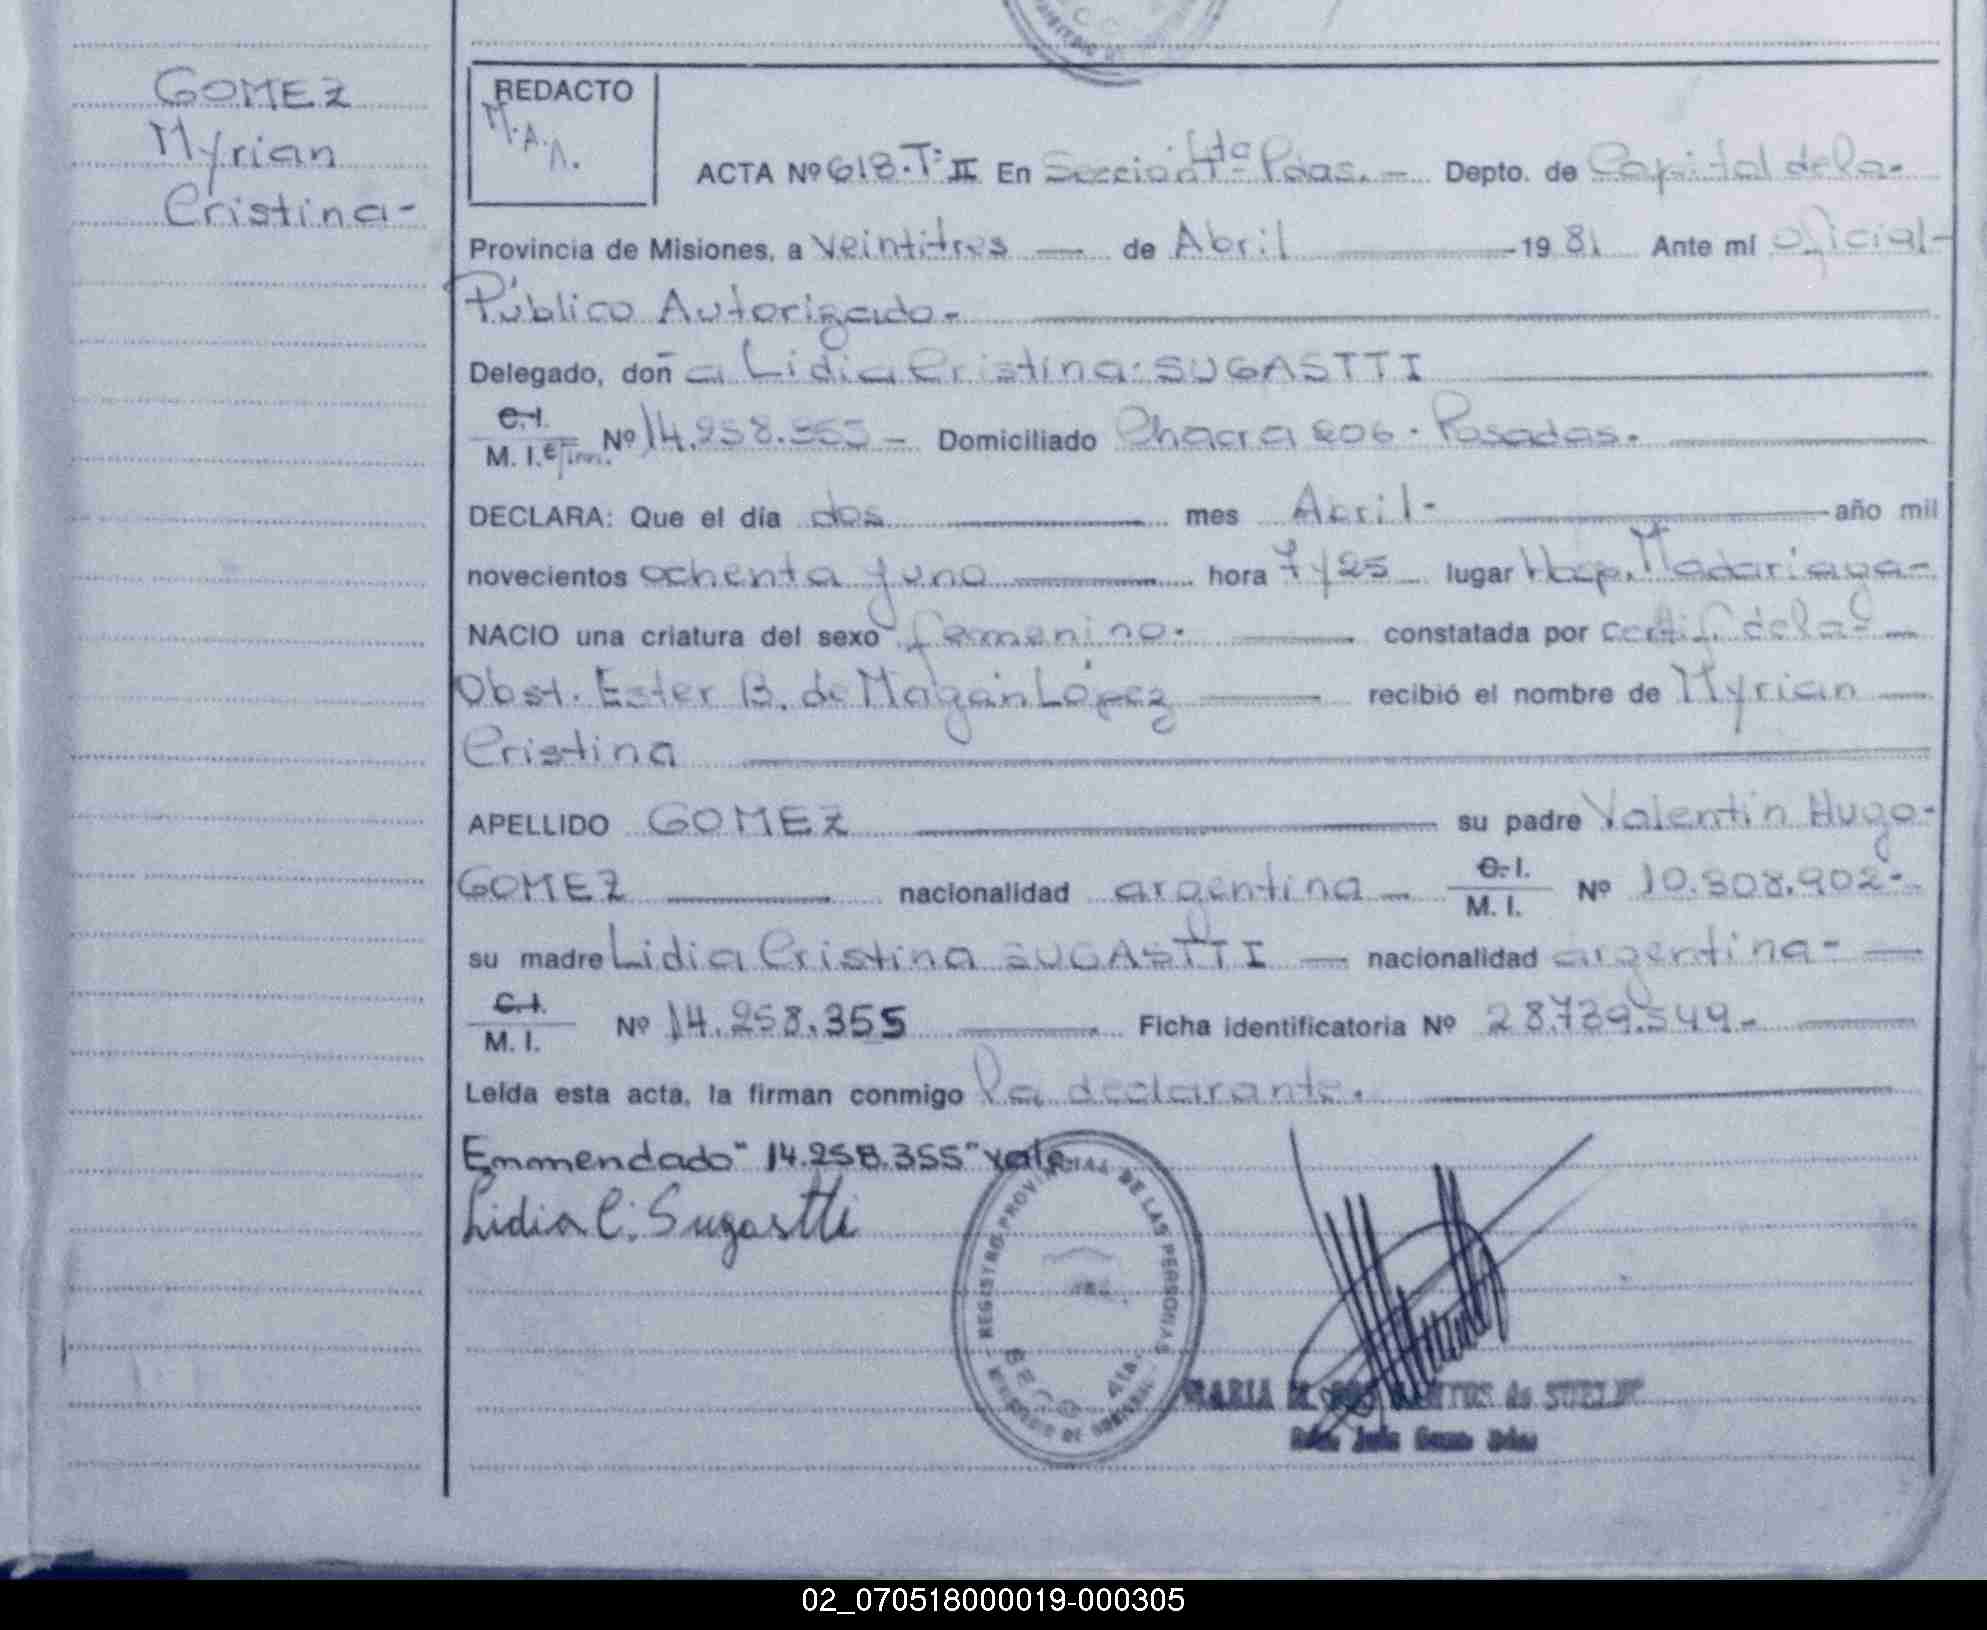 GOMEZ
Myrian
Cristina-
REDACTO
M.A.A.
ACTA Nº 618.Tº II En Sección 4ta Pdas.- Depto. de Capital de la-
Provincia de Misiones, a veintitres — de Abril 19 81 Ante mí oficial-
Público Autorizado-
Delegado, don̄ a Lidia Cristina SUGASTTI
C.I.
M. I. Nº 14.258.355- Domiciliado Chacra 206. Posadas.
DECLARA: Que el día dos mes Abril- año mil
novecientos ochenta y uno hora 7 y 25 lugar Hosp. Madariaga-
NACIO una criatura del sexo femenino. constatada por Certif. de la-
Obst. Ester B. de Magán López recibió el nombre de Myrian
Cristina
APELLIDO GOMEZ su padre Valentín Hugo-
GOMEZ nacionalidad argentina - C.I. / M. I. Nº 10.308.902-
su madre Lidia Cristina SUGASTTI — nacionalidad argentina-
C.I.
M. I. Nº 14.258.355 Ficha identificatoria Nº 28.739.549-
Leída esta acta, la firman conmigo la declarante.
Enmendado "14.258.355" vale
Lidia C. Sugastti
REGISTRO PROVINCIAL DE LAS PERSONAS
MARIA
02_070518000019-000305